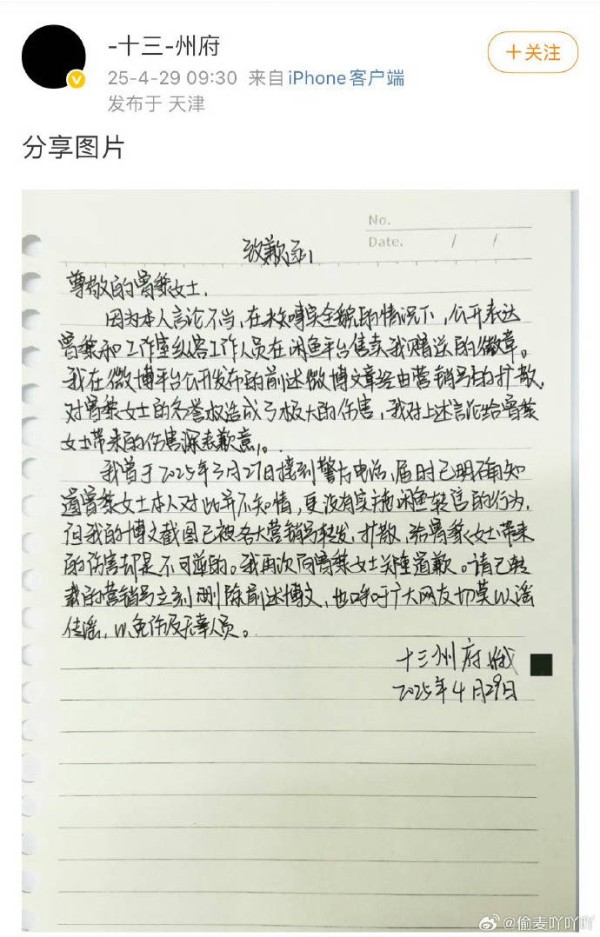 -十三-州府
25-4-29 09:30 来自 iPhone客户端
发布于 天津
+关注
分享图片
No.
Date. / /
致歉函
尊敬的曾黎女士,
因为本人言论不当,在未核实全貌的情况下,公开表达
曾黎和工作室纵容工作人员在闲鱼平台售卖我赠送的徽章。
我在微博平台公开发布的前述微博文章经由营销号的扩散,
对曾黎女士的名誉权造成了极大的伤害,我对上述言论给曾黎
女士带来的伤害深表歉意。
我曾于2025年3月27日接到警方电话,届时已明确知
道曾黎女士本人对此并不知情,更没有实施闲鱼转售的行为,
但我的博文截图已被各大营销号转发、扩散,给曾黎女士带来
的伤害却是不可逆的。我再次向曾黎女士郑重道歉。请已转
载的营销号立刻删除前述博文,也呼吁广大网友切莫以谣
传谣,以免伤及无辜人员。
十三州府
2025年4月29日
@偷麦吖吖吖